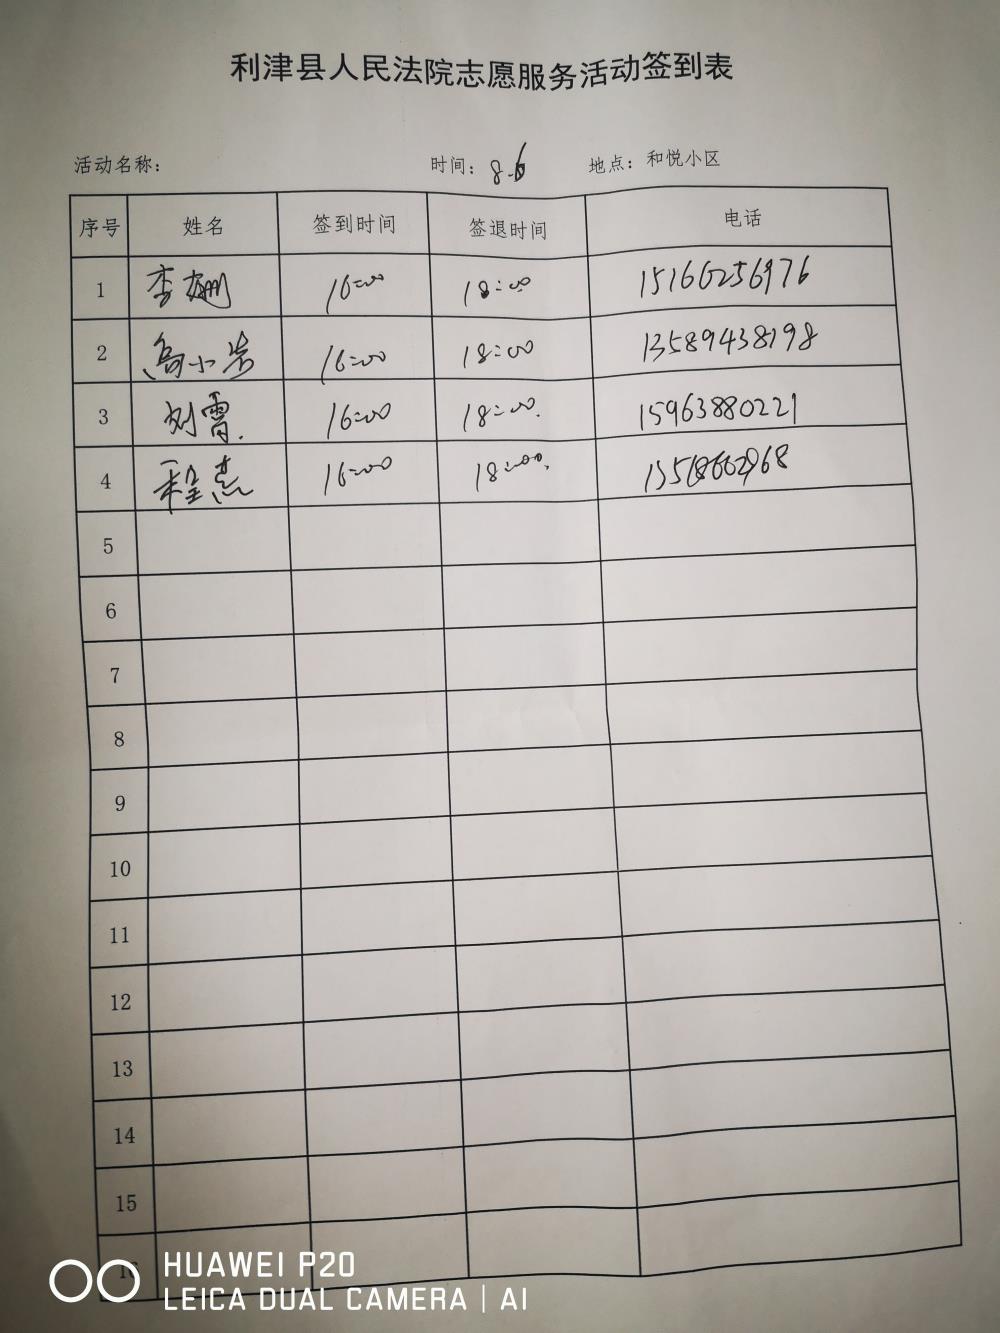 利津县人民法院志愿服务活动签到表
活动名称: 时间: 8.6 地点: 和悦小区
序号 姓名 签到时间 签退时间 电话
1 李姗 16:00 18:00 15166256976
2 高小岩 16:00 18:00 13589438198
3 刘霄 16:00 18:00 15963880221
4 程志 16:00 18:00
5
6
7
8
9
10
11
12
13
14
15
16
HUAWEI P20
LEICA DUAL CAMERA | AI